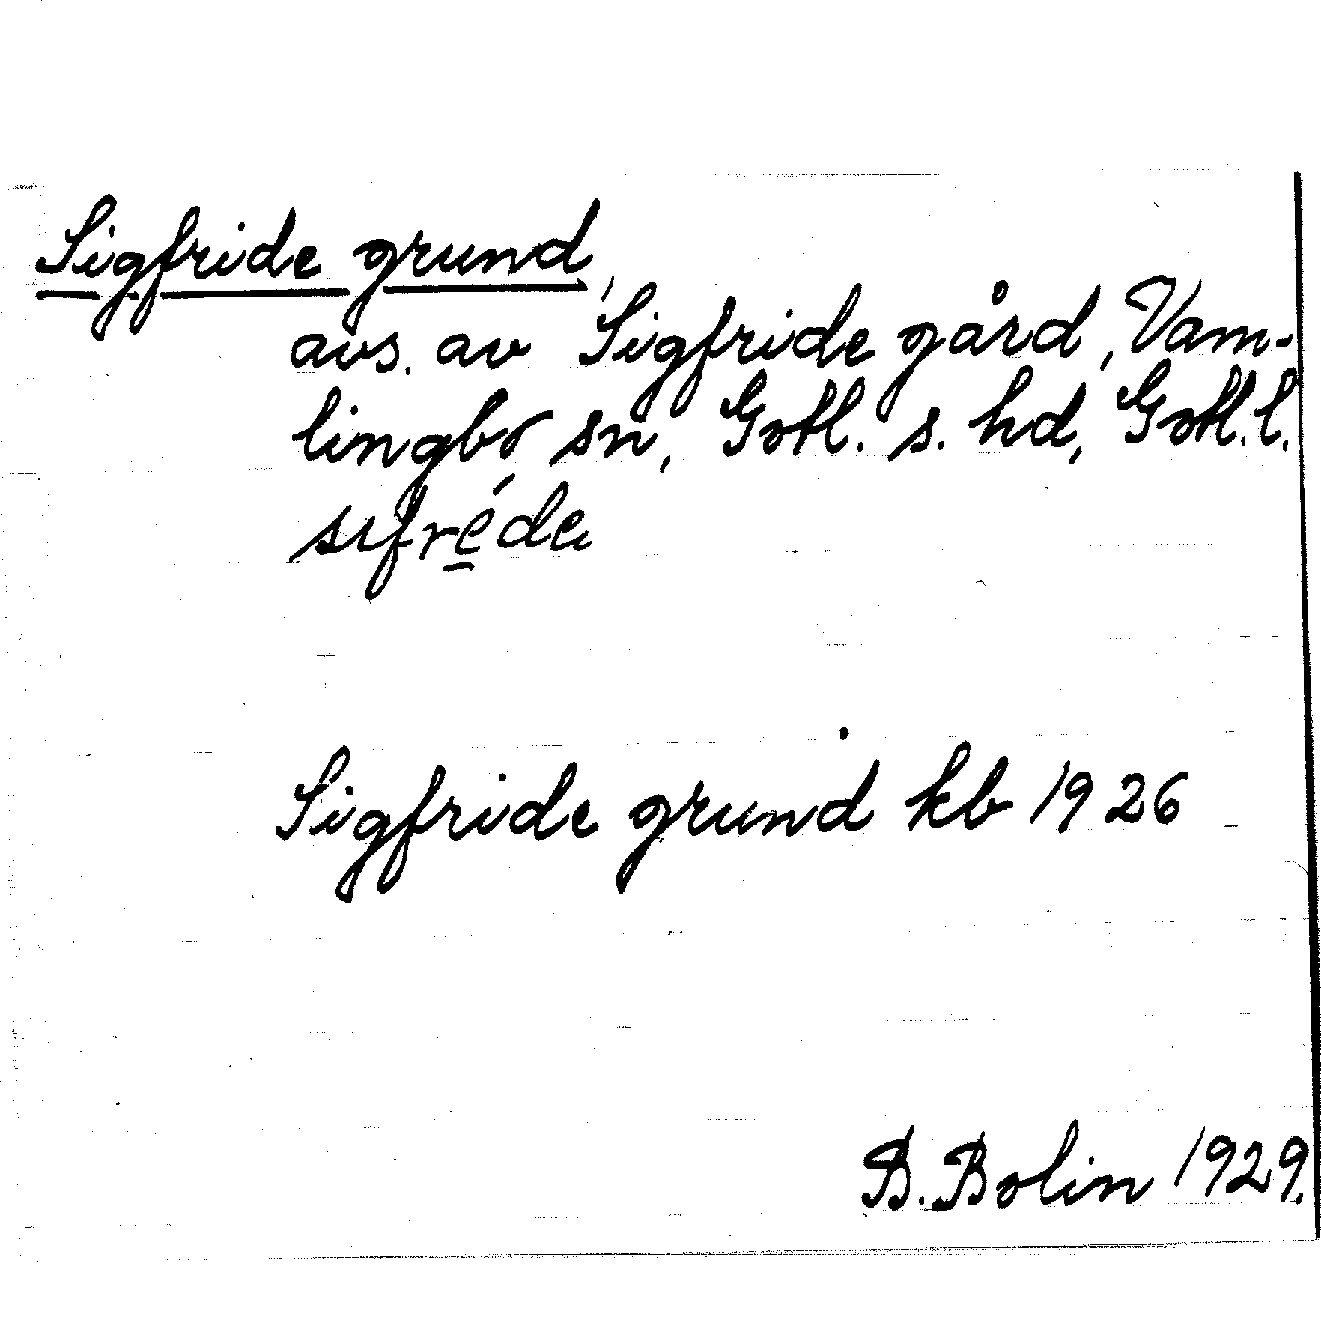 Sigfride grund,
avs. av Sigfride gård, Vam-
lingbo sn, Gotl. s. hd, Gotl. l.
sıfré̲de
Sigfride grund kb 1926
B. Bolin 1929.